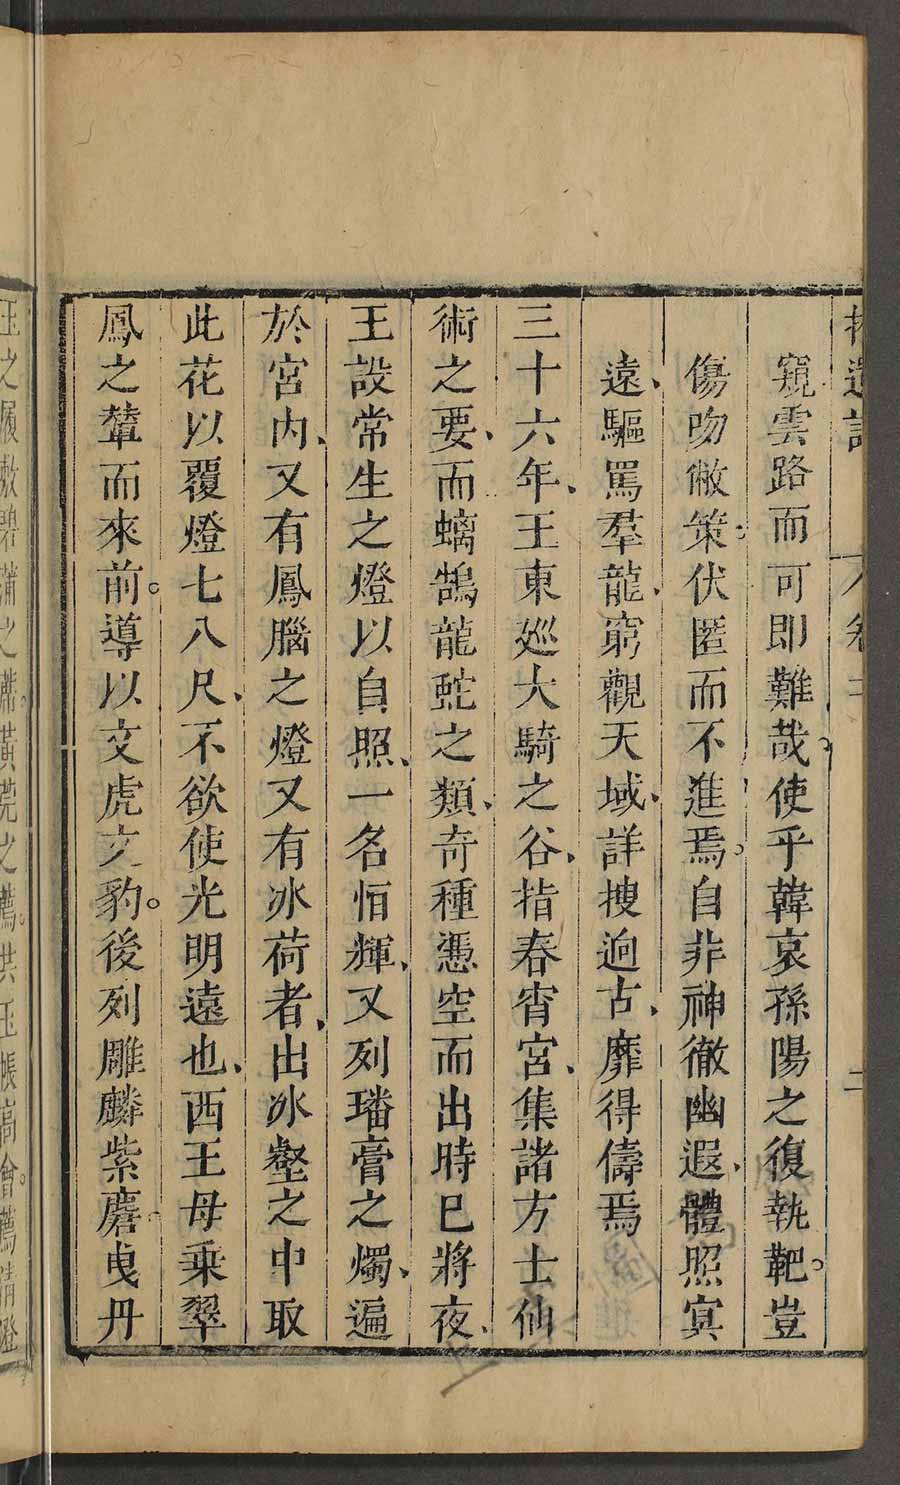 拾遺記 卷三 二
窺雲路而可即難哉使乎韓哀孫陽之復執靶豈
傷吻敝策伏匿而不進焉自非神徹幽遐體照冥
遠驅駡羣龍窮觀天域詳搜迥古靡得儔焉
三十六年王東廵大騎之谷指春宵宮集諸方士仙
術之要而螭鵠龍蛇之類奇種憑空而出時巳將夜
王設常生之燈以自照一名恒輝又列璠膏之燭遍
於宮内又有鳳腦之燈又有冰荷者出冰壑之中取
此花以覆燈七八尺不欲使光明遠也西王母乗翠
鳳之輦而來前導以文虎文豹後列雕麟紫麏曵丹
玉之履敷碧蒲之席黃莞之薦共玉帳高會薦清澄